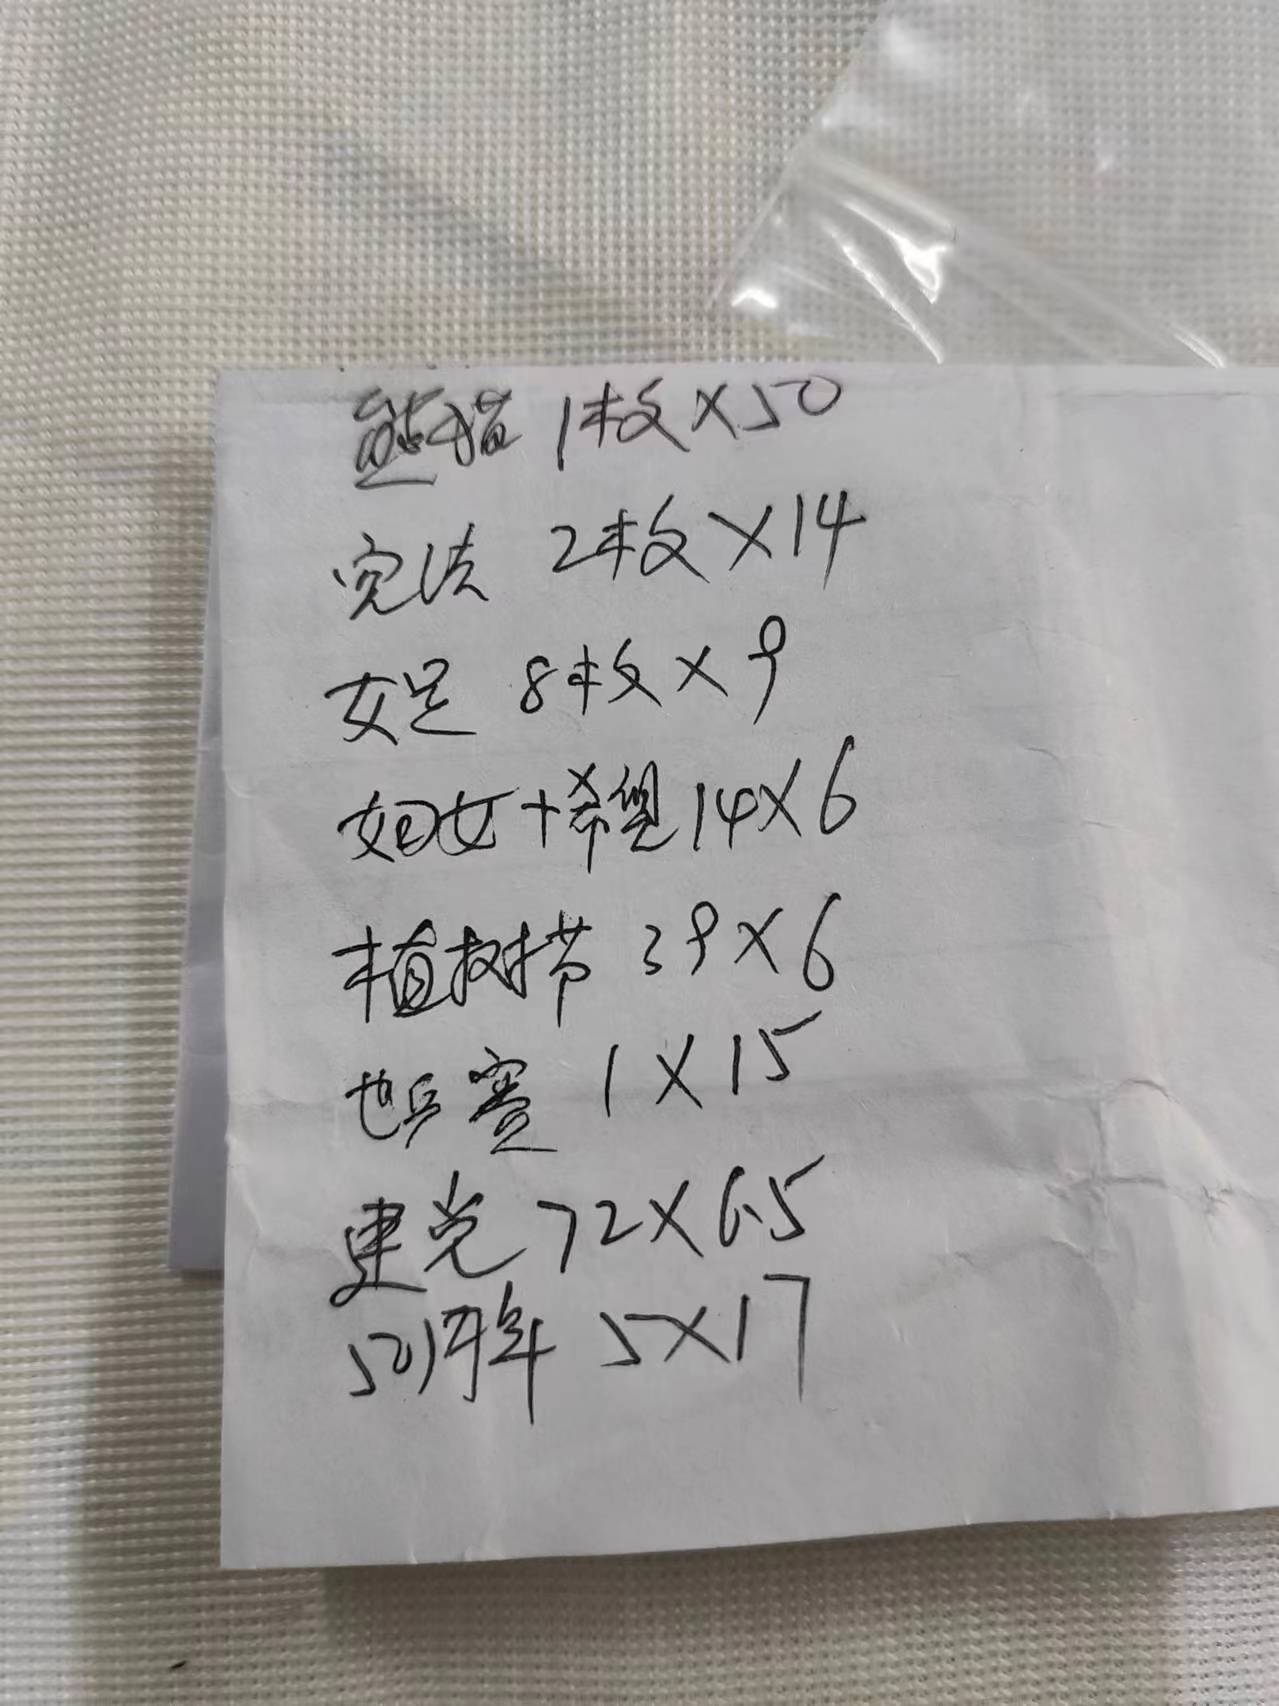 熊猫 1枚×50
宪法 2枚×14
女足 8枚×9
妇女+希望 14×6
植树节 39×6
世乒赛 1×15
建党 72×6.5
50周年 5×17